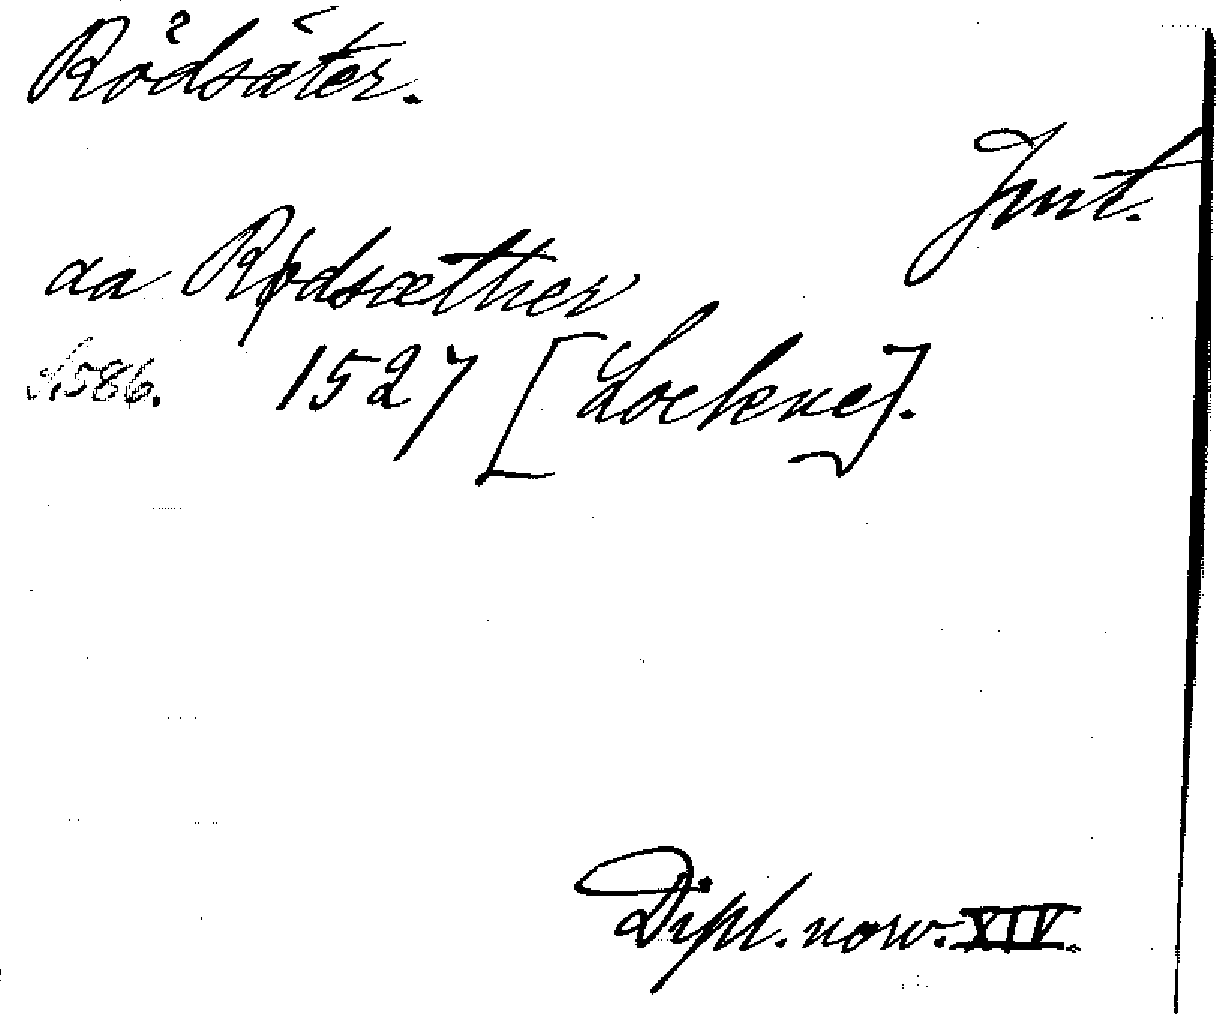 Rödsäter.
Jmt.
aa Rødsæther
s. 586. 1527 [Lockne].
Dipl. norv. XIV.